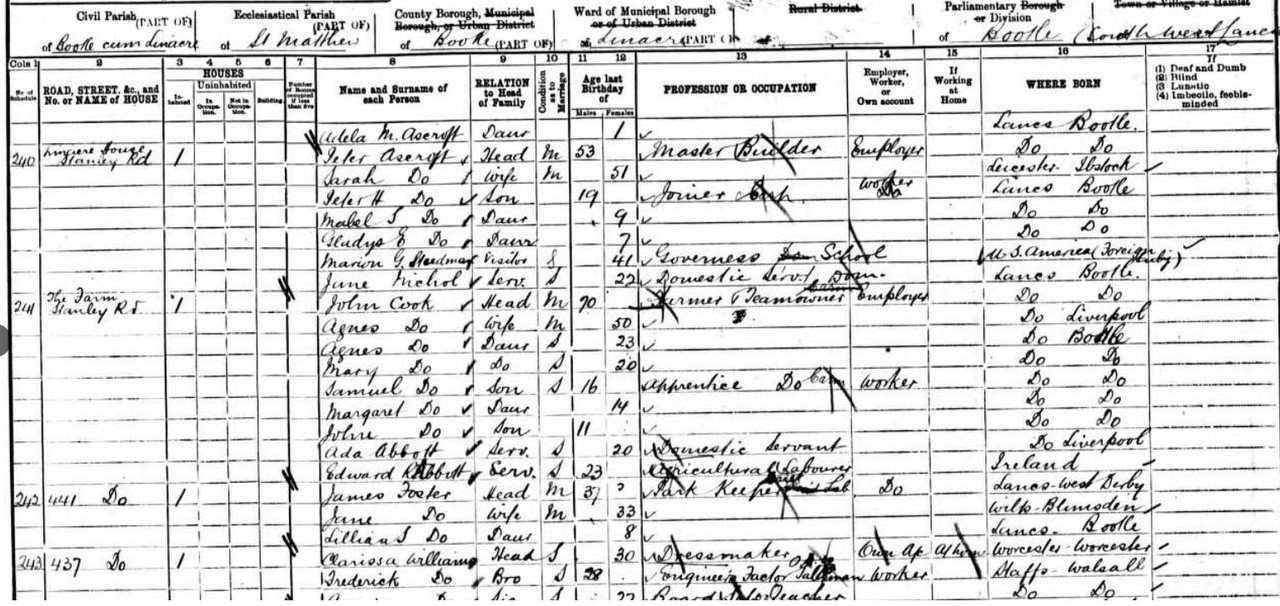 Civil Parish (PART OF) Ecclesiastical Parish (PART OF) County Borough, Municipal Borough, or Urban District Ward of Municipal Borough or of Urban District Rural District Parliamentary Borough or Division Town or Village or Hamlet
of Bootle cum Linacre of St Matthew of Bootle (PART OF) of Linacre (PART of Bootle
Cols 1 2 3 4 5 6 7 8 9 10 11 12 13 14 15 16 17
No. of Schedule ROAD, STREET, &c., and No. or NAME of HOUSE HOUSES Inhabited Uninhabited In Occupation. Not in Occupation. Building. Number of Rooms occupied if less than five Name and Surname of each Person RELATION to Head of Family Condition as to Marriage Age last Birthday of Males Females PROFESSION OR OCCUPATION Employer, Worker, or Own account If Working at Home WHERE BORN If (1) Deaf and Dumb (2) Blind (3) Lunatic (4) Imbecile, feeble-minded
Adela M. Ascroft Daur 1 Lancs Bootle.
240 House Stanley Rd 1 Peter Ascroft Head M 53 Master Builder Employer Do Do
Sarah Do Wife M 51 Leicester Ibstock
Peter H Do Son 19 Joiner worker Lancs Bootle
Mabel S Do Daur 9 Do Do
Gladys E Do Daur 7 Do Do
Marion G. Steedman Visitor S 41 Governess School U.S. America (Foreign
Jane Nichol Serv. S 22 Domestic Serv Dom. Lancs Bootle.
241 The Farm Stanley Rd. 1 John Cook Head M 70 Farmer Teamowner Employer Do Do
Agnes Do Wife M 50 Do Liverpool
Agnes Do Daur S 23 Do Bootle
Mary Do Do S 20 Do Do
Samuel Do Son S 16 Apprentice Do worker Do Do
Margaret Do Daur 14 Do Do
John Do Son 11 Do Do
Ada Abbott Serv. S 20 Domestic Servant Do Liverpool
Edward Abbott Serv. S 23 Agricultural Labourer Ireland
242 441 Do 1 James Foster Head M Park Keeper Do Lancs-West Derby
Jane Do Wife M 33 Wilts-Blunsden
Lillian S Do Daur 8 Lancs. Bootle
243 437 Do 1 Clarissa Williams Head S 30 Dressmaker Own Ac At home Worcester-Worcester
Frederick Do Bro S 28 Engineers Factor worker Staffs-Walsall
27 Board Teacher Do Do